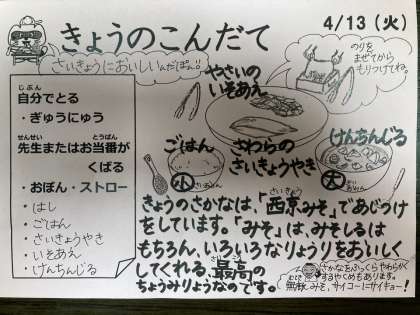 きょうのこんだて
4/13(火)
さいきょうにおいしいんだぽん!!
のりを
まぜてから
もりつけてね。
やさいの
いそあえ
じぶん
自分でとる
・ぎゅうにゅう
せんせい とうばん
先生またはお当番が
くばる
・おぼん・ストロー
・はし
・ごはん
・さいきょうやき
・いそあえ
・けんちんじる
ごはん
小
さわらの
さいきょうやき
けんちんじる
大
きょうのさかなは、「西京みそ」であじつけ
さいきょう
をしています。「みそ」は、みそしるは
もちろん、いろいろなりょうりをおいしく
してくれる、最高の
さいこう
ちょうみりょうなのです。
さかなをふっくらやわらかく
するやくめもあります。
無敵みそ、サイコーにサイキョー!